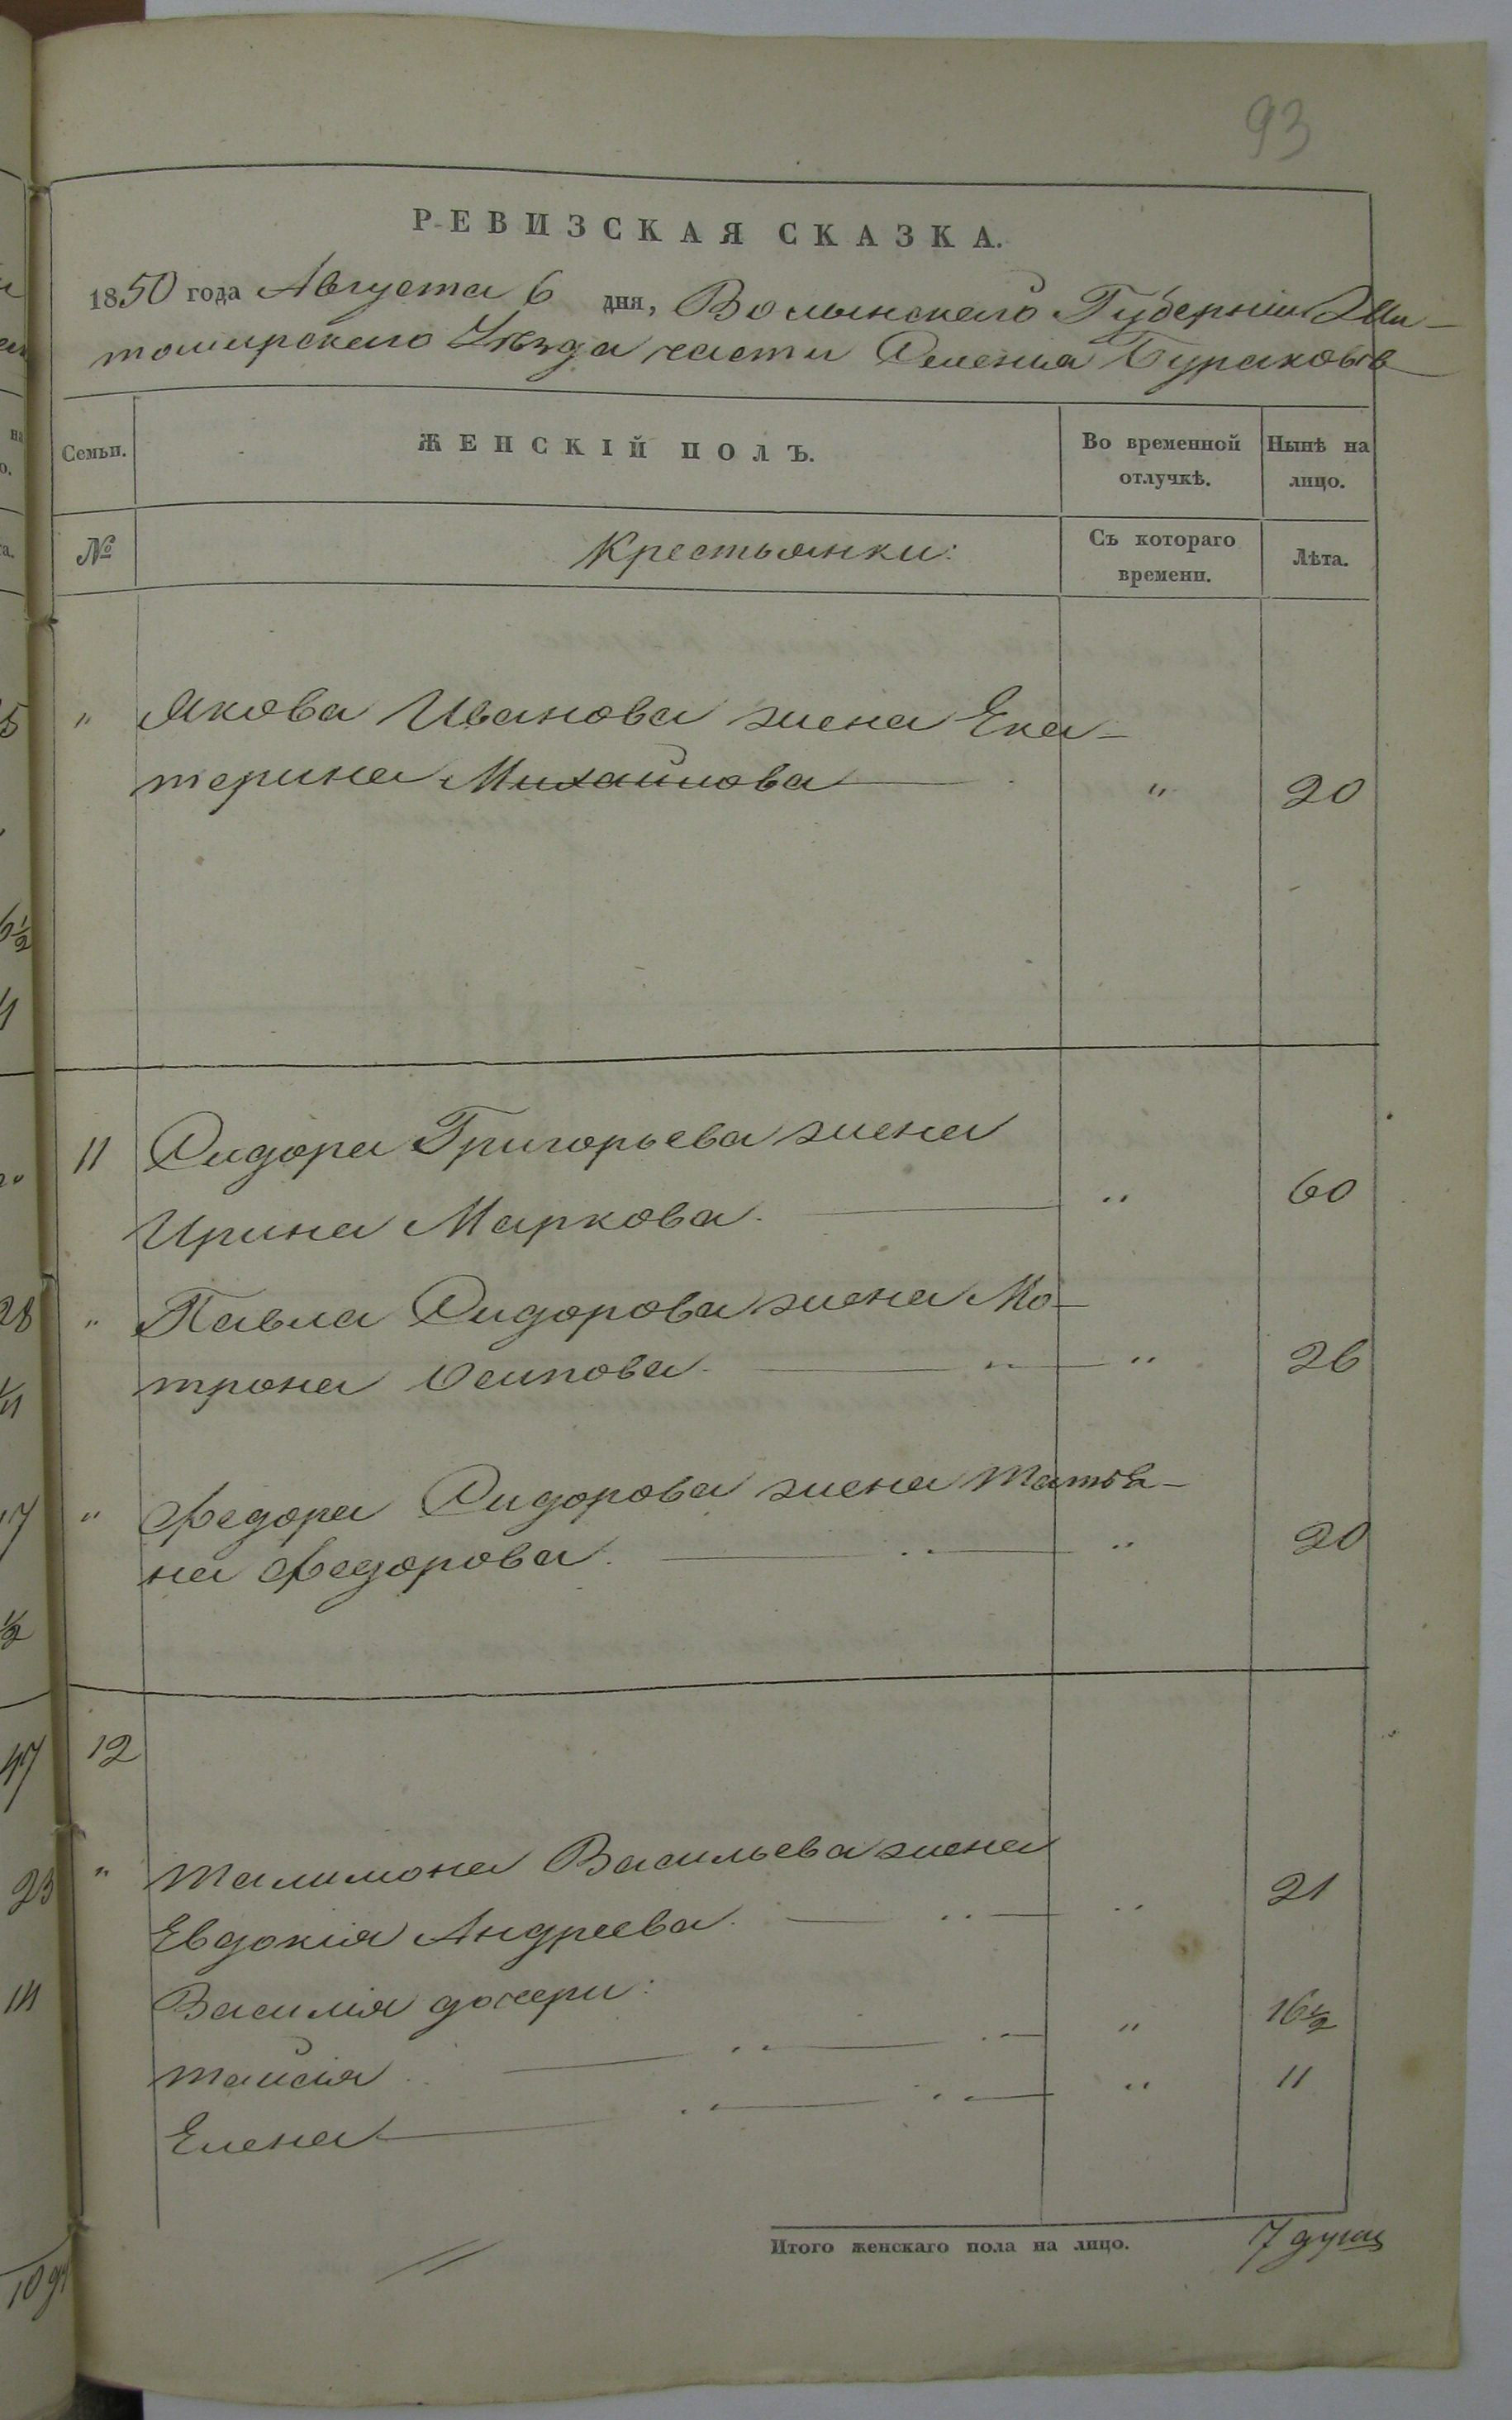 93
РЕВИЗСКАЯ СКАЗКА.
1850 года Августа 6 дня, Волынскаго Губерніи Жи-
томирскаго Уѣзда части Селенія Бураковъ
Семьи. ЖЕНСКІЙ ПОЛЪ. Во временной отлучкѣ. Нынѣ на лицо.
№ Крестьянки: Съ котораго времени. Лѣта.
" Якова Иванова жена Ека-
терина Михайлова " 20
11 Сидора Григорьева жена
Ирина Маркова. " 60
" Павла Сидорова жена Мо-
трона Осипова " " 26
" Федора Сидорова жена Татья-
на Федорова. " " 20
12
" Талимона Васильева жена
Евдокія Андреева. " " 21
Василія дочери:
Таисія " " " 16½
Елена " " " 11
Итого женскаго пола на лицо. 7 душ